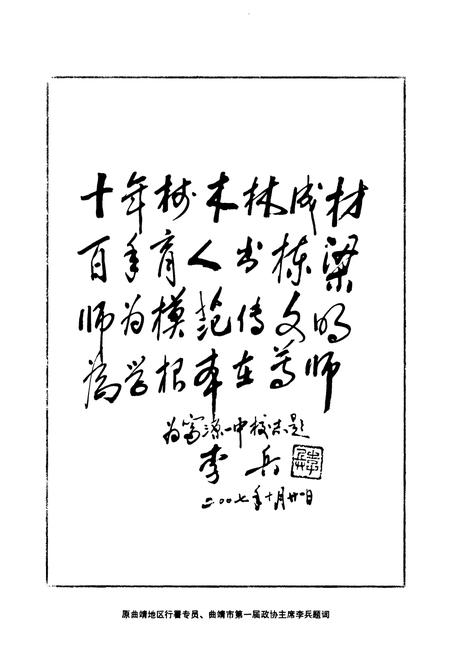 十年树木林成材
百年育人出栋梁
师为模范传文明
为学根本在尊师
为富源一中校志题
李兵
二〇〇七年十月廿一日
原曲靖地区行署专员、曲靖市第一届政协主席李兵题词